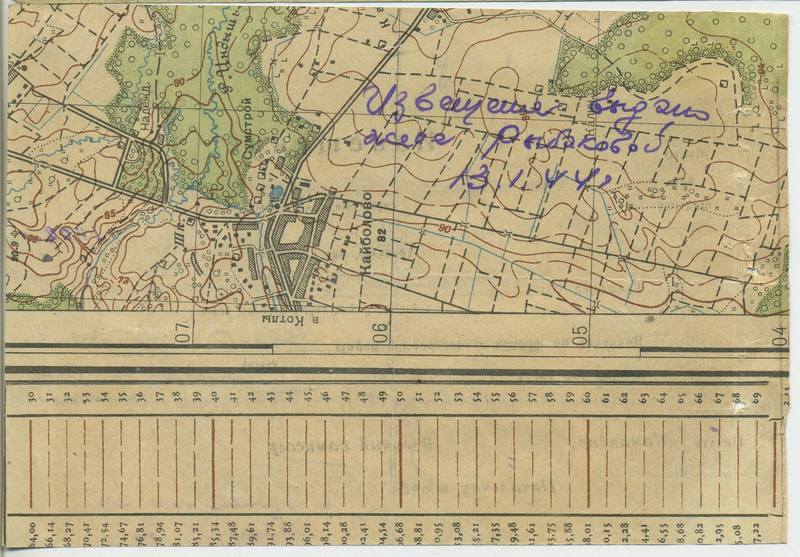 Извещение выдано
жене Рыбаковой
13.1.44г
Надежд.
90
р. Индыш
Сумстрой
85
73
Шк.
Кайболово
82
90
в Котлы
07
06
05
04
30 31 32 33 34 35 36 37 38 39 40 41 42 43 44 45 46 47 48 49 50 51 52 53 54 55 56 57 58 59 60 61 62 63 64 65 66 67 68 69
64,00 66,14 68,27 70,41 72,54 74,67 76,81 78,94 81,07 83,21 85,34 87,48 89,61 91,74 93,88 96,01 98,14 00,28 02,41 04,54 06,68 08,81 10,95 13,08 15,21 17,35 19,48 21,61 23,75 25,88 28,01 30,15 32,28 34,41 36,55 38,68 40,82 42,95 45,08 47,22